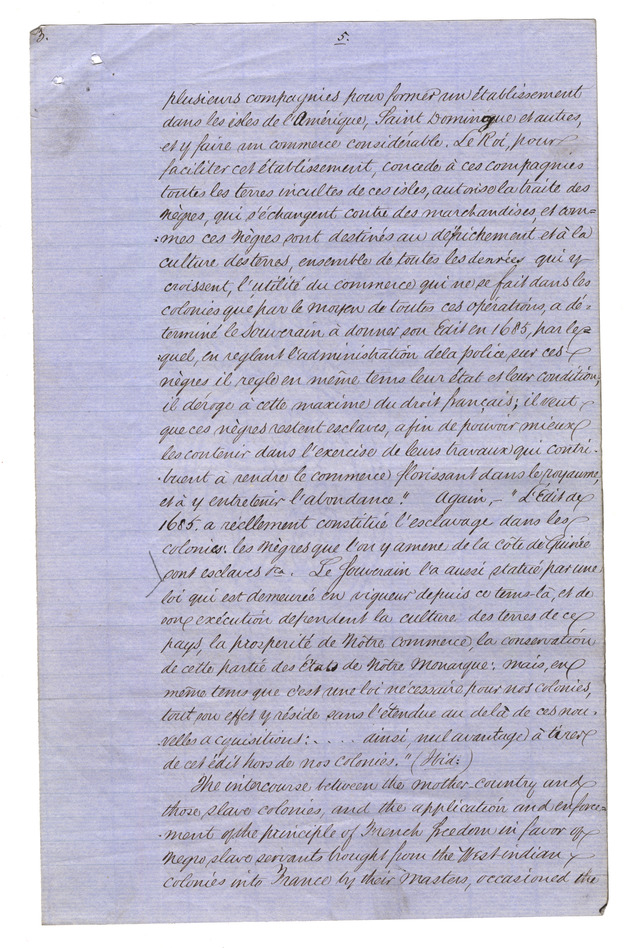 3.
5.
plusieurs compagnies pour former un établissement
dans les isles de l'Amérique, Saint Domingue et autres,
et y faire un commerce considérable. Le Roi, pour
faciliter cet établissement, concede à ces compagnies
toutes les terres incultes de ces isles, autorise la traite des
Nègres, qui s'échangent contre des marchandises, et com=
:mes ces Nègres sont destinés au défrichement et à la
culture des terres, ensemble de toutes les denrées qui y
croissent, l'utilité du commerce qui ne se fait dans les
colonies que par le moyen de toutes ces opérations, a dé-
terminé le Souverain à donner son Edit en 1685, par le=
-quel, en reglant l'administration de la police sur ces
nègres il regle en même tems leur état et leur condition;
il déroge à cette maxime du droit français; il veut
que ces nègres restent esclaves, afin de pouvoir mieux
les contenir dans l'exercise de leurs travaux qui contri-
-buent à rendre le commerce florissant dans le royaume,
et à y entretenir l'abondance." Again,- "L'Edit de
1685. a réellement constitué l'esclavage dans les
colonies. les Nègres que l'on y amene de la côte de Guinée
sont esclaves &ca. Le Souverain l'a aussi statué par une
loi qui est demeurée en vigueur depuis ce tems-là, et de
son exécution dependent la culture des terres de ce
pays, la prosperité de Notre commerce, la conservation
de cette partie des États de Notre Monarque: mais, en
même tems que c'est une loi nécessaire pour nos colonies,
tout son effet y réside sans l'étendue au delà de ces nou-
velles acquisitions: .... ainsi, nul avantage à tirer
de cet édit hors de nos colonies." (Ibid:)
The intercourse between the mother-country and
those slave colonies, and the application and enforce=
ment of the principle of French freedom in favor of
Negro, slave servants brought from the West-indian
colonies into France by their masters, occasioned the